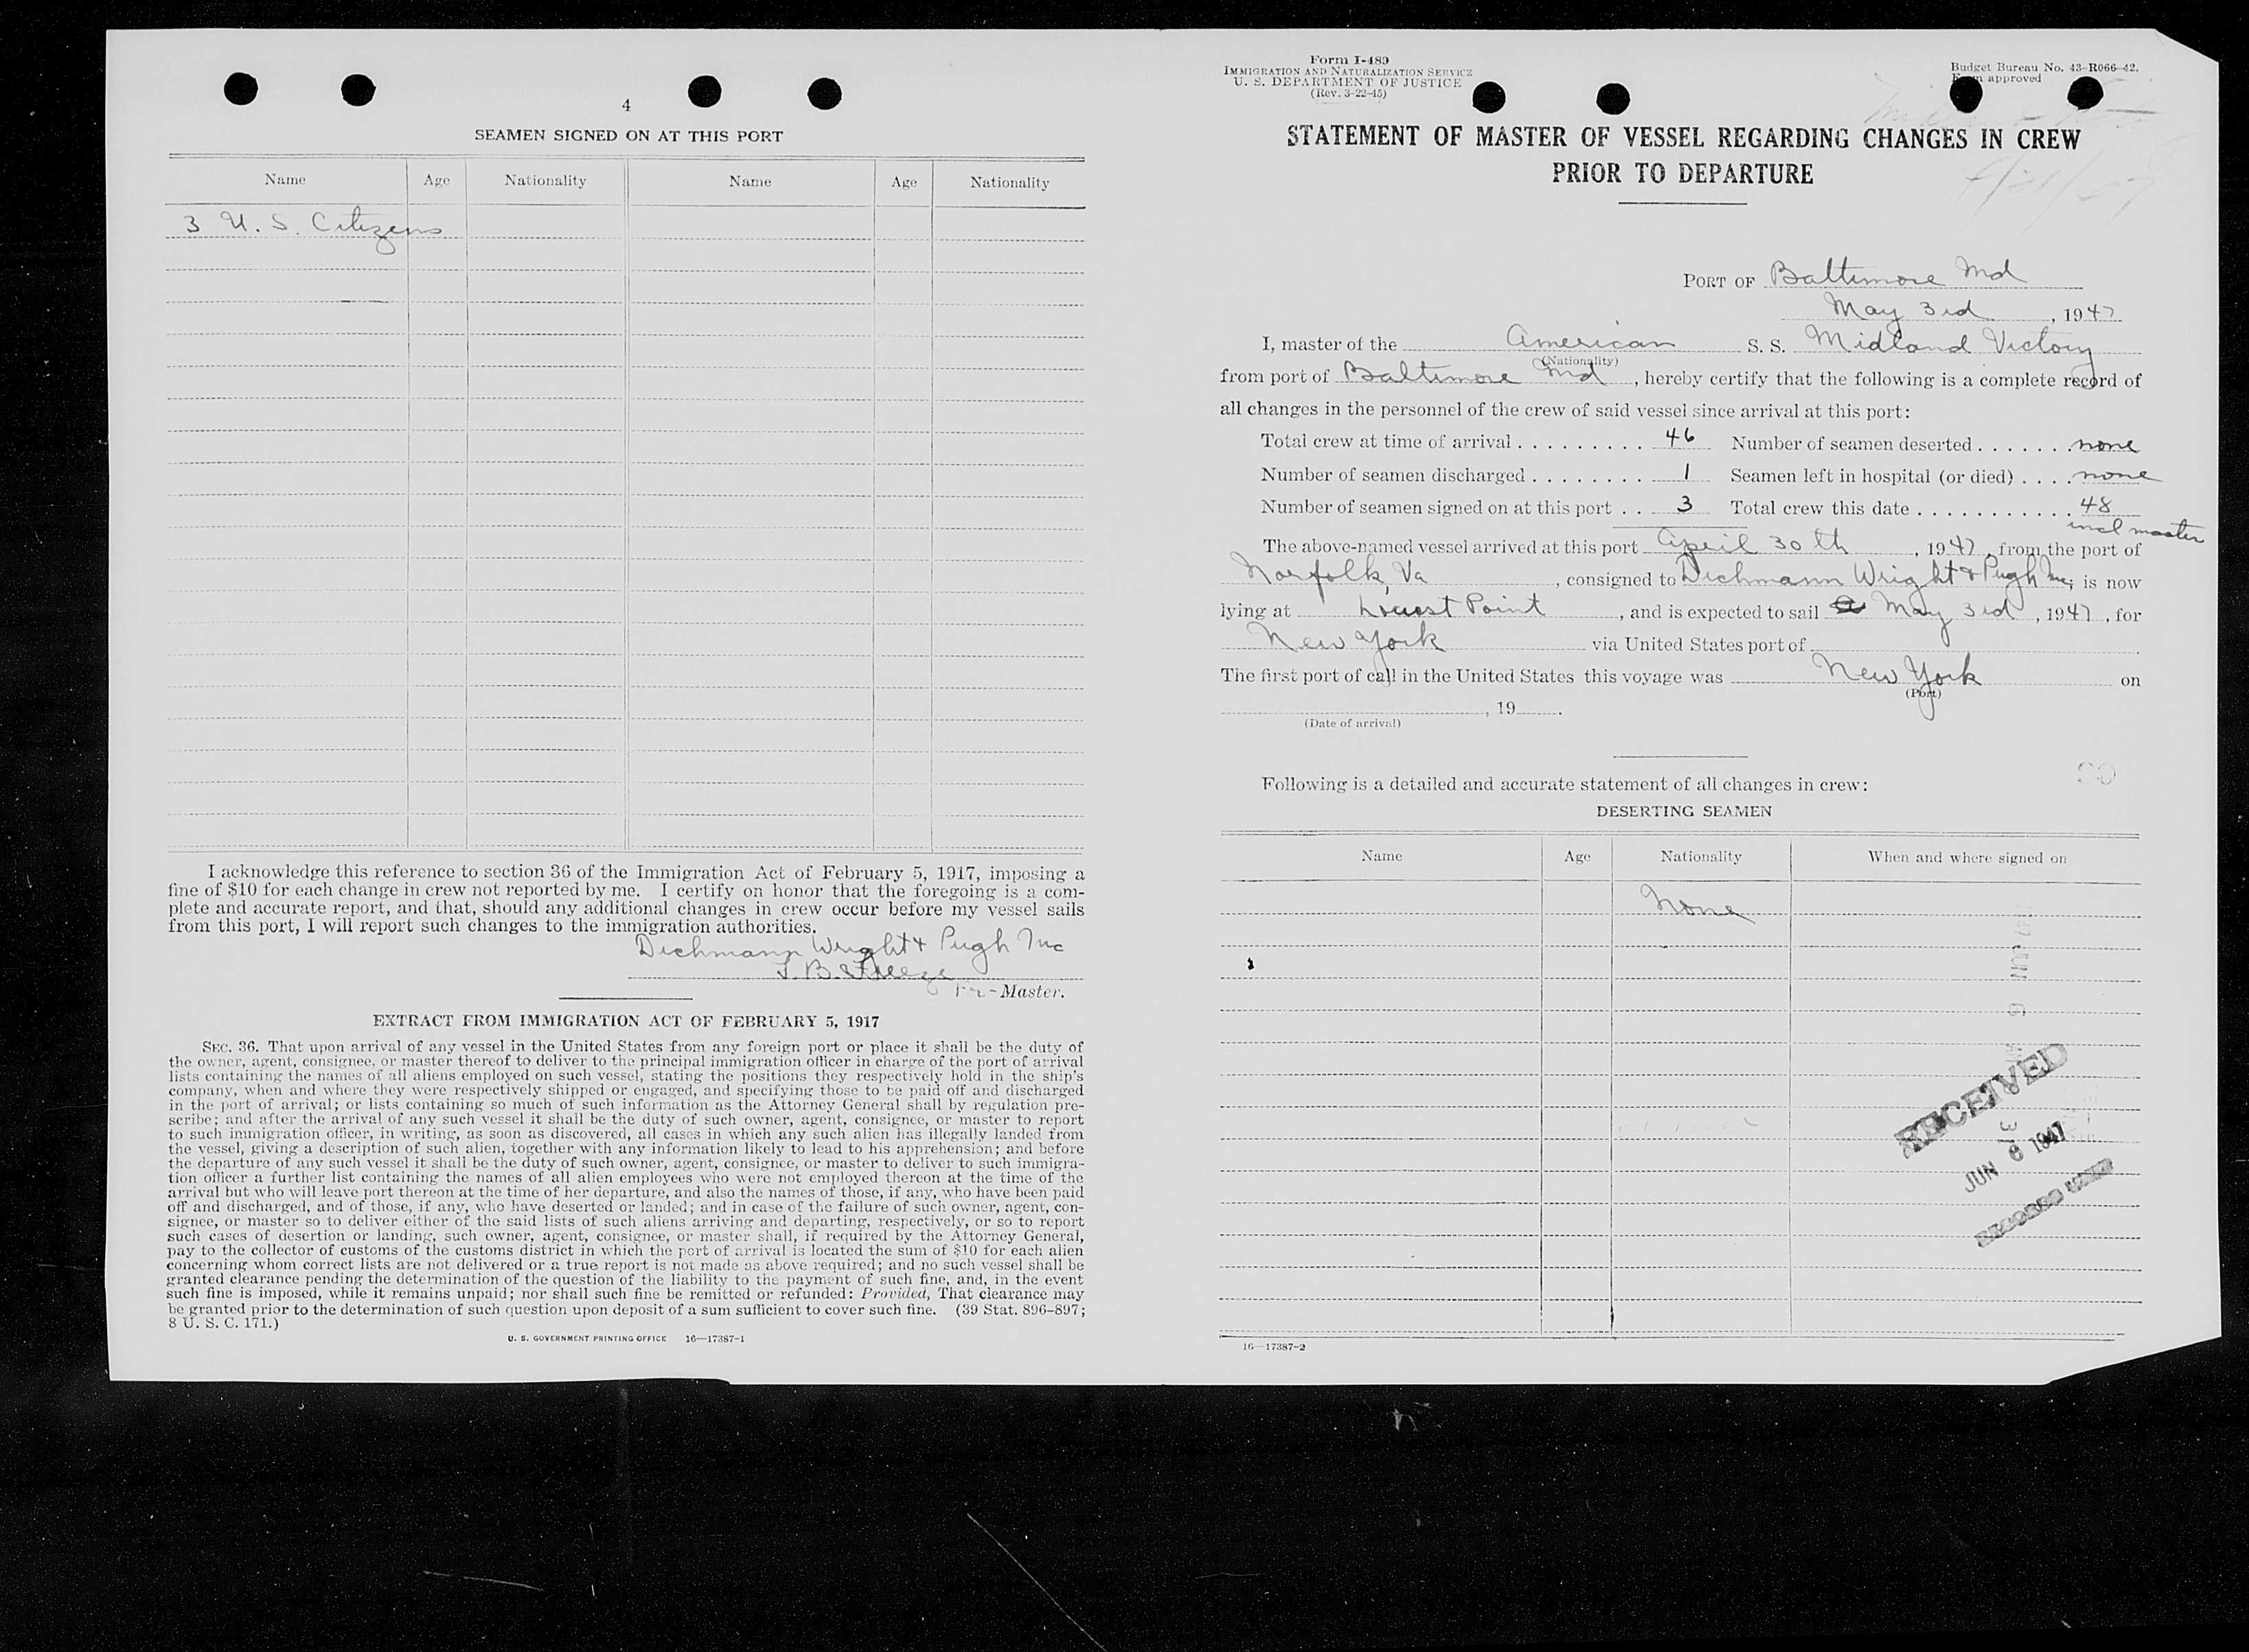 4
SEAMEN SIGNED ON AT THIS PORT
Name Age Nationality Name Age Nationality
3 U. S. Citizens
I acknowledge this reference to section 36 of the Immigration Act of February 5, 1917, imposing a
fine of $10 for each change in crew not reported by me. I certify on honor that the foregoing is a com-
plete and accurate report, and that, should any additional changes in crew occur before my vessel sails
from this port, I will report such changes to the immigration authorities.
Dichmann Wright & Pugh Inc
For - Master.
EXTRACT FROM IMMIGRATION ACT OF FEBRUARY 5, 1917
SEC. 36. That upon arrival of any vessel in the United States from any foreign port or place it shall be the duty of
the owner, agent, consignee, or master thereof to deliver to the principal immigration officer in charge of the port of arrival
lists containing the names of all aliens employed on such vessel, stating the positions they respectively hold in the ship's
company, when and where they were respectively shipped or engaged, and specifying those to be paid off and discharged
in the port of arrival; or lists containing so much of such information as the Attorney General shall by regulation pre-
scribe; and after the arrival of any such vessel it shall be the duty of such owner, agent, consignee, or master to report
to such immigration officer, in writing, as soon as discovered, all cases in which any such alien has illegally landed from
the vessel, giving a description of such alien, together with any information likely to lead to his apprehension; and before
the departure of any such vessel it shall be the duty of such owner, agent, consignee, or master to deliver to such immigra-
tion officer a further list containing the names of all alien employees who were not employed thereon at the time of the
arrival but who will leave port thereon at the time of her departure, and also the names of those, if any, who have been paid
off and discharged, and of those, if any, who have deserted or landed; and in case of the failure of such owner, agent, con-
signee, or master so to deliver either of the said lists of such aliens arriving and departing, respectively, or so to report
such cases of desertion or landing, such owner, agent, consignee, or master shall, if required by the Attorney General,
pay to the collector of customs of the customs district in which the port of arrival is located the sum of $10 for each alien
concerning whom correct lists are not delivered or a true report is not made as above required; and no such vessel shall be
granted clearance pending the determination of the question of the liability to the payment of such fine, and, in the event
such fine is imposed, while it remains unpaid; nor shall such fine be remitted or refunded: Provided, That clearance may
be granted prior to the determination of such question upon deposit of a sum sufficient to cover such fine. (39 Stat. 896-897;
8 U. S. C. 171.)
U. S. GOVERNMENT PRINTING OFFICE 16—17387-1
Form I-489
IMMIGRATION AND NATURALIZATION SERVICE
U. S. DEPARTMENT OF JUSTICE
(Rev. 3-22-45)
Budget Bureau No. 43-R066-42.
Form approved
STATEMENT OF MASTER OF VESSEL REGARDING CHANGES IN CREW
PRIOR TO DEPARTURE
PORT OF Baltimore Md
May 3rd, 1947
I, master of the American S. S. Midland Victory
(Nationality)
from port of Baltimore Md, hereby certify that the following is a complete record of
all changes in the personnel of the crew of said vessel since arrival at this port:
Total crew at time of arrival . . . . . . . . . 46 Number of seamen deserted . . . . . . . none
Number of seamen discharged . . . . . . . . 1 Seamen left in hospital (or died) . . . . none
Number of seamen signed on at this port . . 3 Total crew this date . . . . . . . . . . . 48
incl master
The above-named vessel arrived at this port April 30th, 1947, from the port of
Norfolk, Va, consigned to Dichmann Wright & Pugh Inc; is now
lying at Locust Point, and is expected to sail May 3rd, 1947, for
New York via United States port of
The first port of call in the United States this voyage was New York on
(Port)
, 19 .
(Date of arrival)
Following is a detailed and accurate statement of all changes in crew:
DESERTING SEAMEN
Name Age Nationality When and where signed on
None
RECEIVED
JUN 6 1947
RECORDS UNIT
16—17387-2